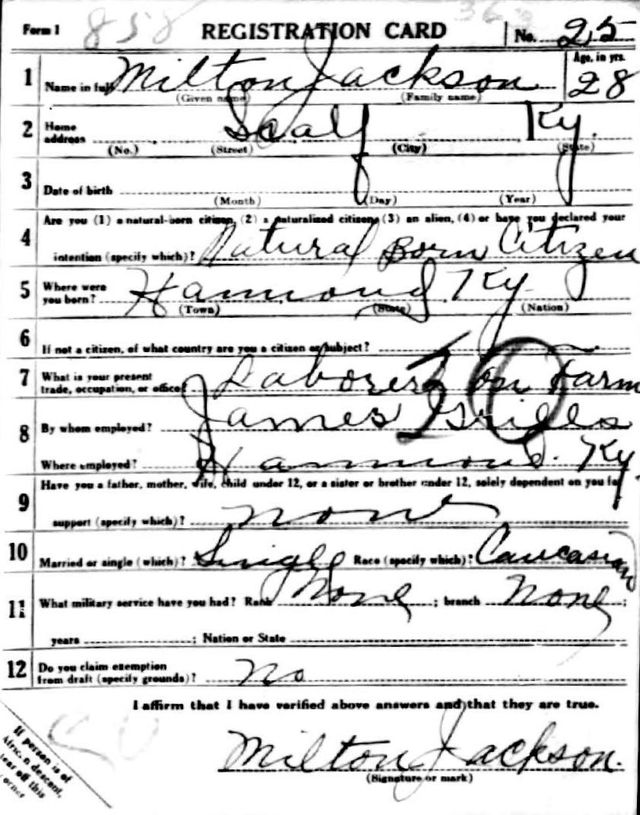 Form 1 858 REGISTRATION CARD No. 25
1 Name in full Milton Jackson Age, in yrs. 28
(Given name) (Family name)
2 Home address Scalf Ky.
(No.) (Street) (City) (State)
3 Date of birth
(Month) (Day) (Year)
4 Are you (1) a natural-born citizen, (2) a naturalized citizen, (3) an alien, (4) or have you declared your
intention (specify which)? Natural Born Citizen
5 Where were you born? Hammond Ky
(Town) (State) (Nation)
6 If not a citizen, of what country are you a citizen or subject?
7 What is your present trade, occupation, or office? Laborer on Farm
8 By whom employed? James
Where employed? Hammond. Ky.
9 Have you a father, mother, wife, child under 12, or a sister or brother under 12, solely dependent on you for
support (specify which)? none
10 Married or single (which)? Single Race (specify which)? Caucasian
11 What military service have you had? Rank None ; branch None ;
years ; Nation or State
12 Do you claim exemption from draft (specify grounds)? No
I affirm that I have verified above answers and that they are true.
Milton Jackson.
(Signature or mark)
If person is of
African descent,
tear off this
corner